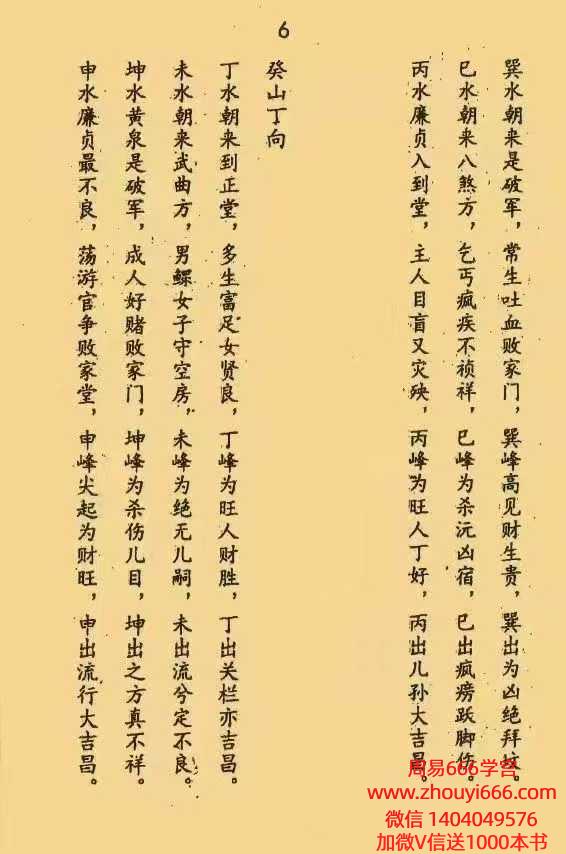 6
巽水朝来是破军，常生吐血败家门，巽峰高见财生贵，巽出为凶绝拜坟。
巳水朝来八煞方，乞丐疯疾不祯祥，巳峰为杀沅凶宿，巳出疯痨跃脚伤。
丙水廉贞入到堂，主人目盲又灾殃，丙峰为旺人丁好，丙出儿孙大吉昌。
癸山丁向
丁水朝来到正堂，多生富足女贤良，丁峰为旺人财胜，丁出关栏亦吉昌。
未水朝来武曲方，男鳏女子守空房，未峰为绝无儿嗣，未出流兮定不良。
坤水黄泉是破军，成人好赌败家门，坤峰为杀伤儿目，坤出之方真不祥。
申水廉贞最不良，荡游官争败家堂，申峰尖起为财旺，申出流行大吉昌。
周易666学宫
www.zhouyi666.com
微信 1404049576
加微V信送1000本书